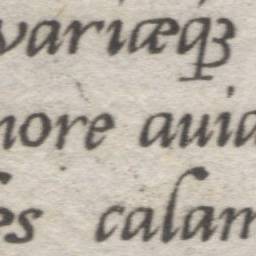 variæqꝫ
nore auia
es calam